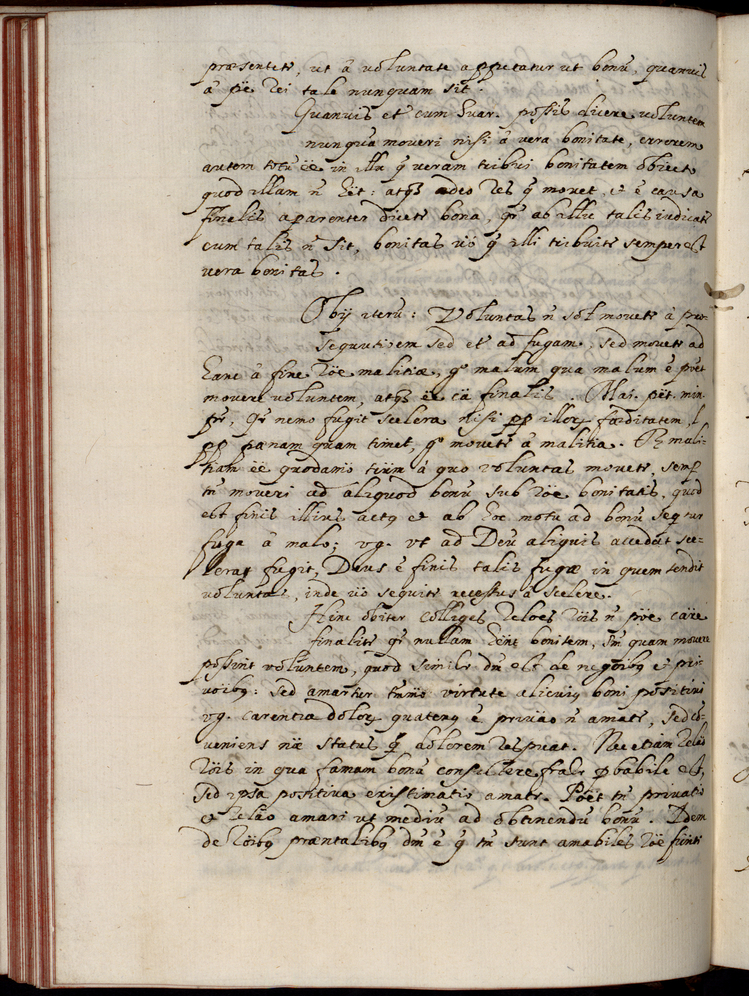 præsentetr, ut â voluntate appetatur ut bonũ, quanvis
â pẽ rei tale nunquam sit.
Quanvis et cum Suar. possis dicere voluntem
nunquã moveri nisi â vera bonitate, errorem
autem totũ ẽe in illa q̃ veram tribui bonitatem obiecto
quod illam ñ het: atq̃ adeo res q̃ movet, et ẽ causa
finalis aparenter dicetr bona, qr̃ ab illa talis iudicatr
cum talis ñ sit, bonitas vẽo q̃ illi tribuitr semper est
vera bonitas.
Obijc iterũ: Voluntas ñ sol movetr â pro-
sequutioem sed et ad fugam, sed movetr ad
hanc â fine rõe malitiæ, gº malum qua malum ẽ põt
movere voluntem, atq̃ ẽe cã finalis. Mai. pẽt. min.
pr, qr̃ nemo fugit scelera nisi pp illor fæditatem, l
pp pænam quam timet, gº movetr â malitia. R mali-
tiam ẽe quodamõ terim â quo voluntas movetr, semp
tñ moveri ad aliquod bonũ sub rõe bonitatis, quod
est finis illius actq et ab hoc motu ad bonũ seqtur
fuga â malo; vg. ut ad Deũ aliquis accedat sce-
lera fugit, Deus ẽ finis talis fugæ in quem tendit
voluntas, inde vẽo sequitr recessus â scelere.
Hinc obiter colliges reloes rõis ñ põe caãre
finalitr qr̃ nullam hent bonitem, sm quam movere
possint voluntem, quod similr dm est de negõibq et pri-
võibq: sed amantur tmmõ virtute alicuiq boni positivi
vg. carentia dolor quatenq ẽ privão ñ amatr, sed cõ-
veniens nẽ status q̃ dolorem respuat. Nec etiam relão
rõis in qua famam bonã consistere fratr pbabile est,
sed ipsa positiva existimatio amatr. Põet tñ privatio
et relão amari ut mediũ ad obtinendũ bonũ. Idem
de rõibq præntalibq dm ẽ q̃ tñ sunt amabiles rõe funti